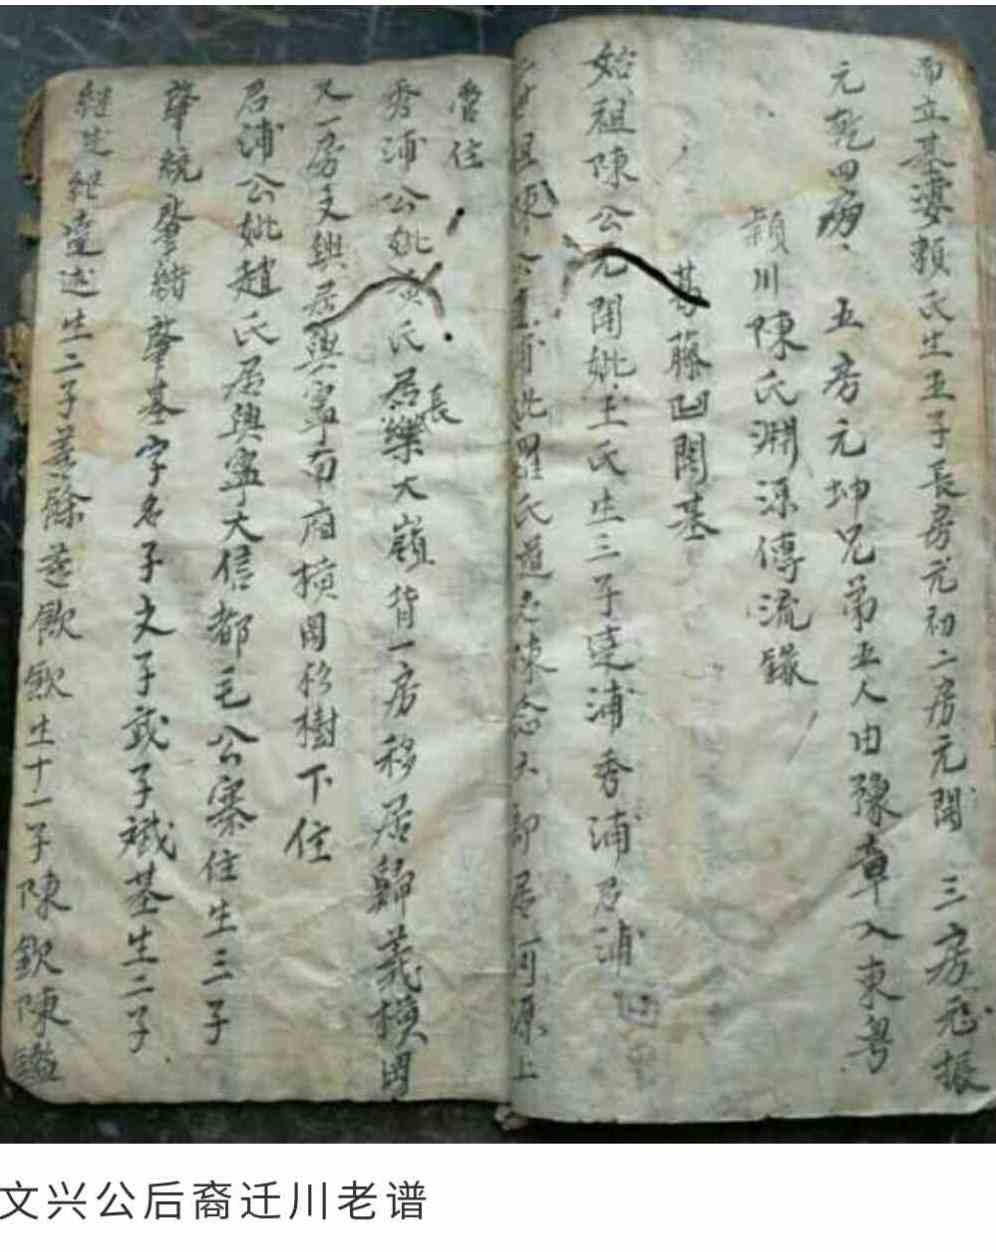 而立基婆賴氏生五子長房元初二房元闊三房元振
元乾四房五房元坤兄弟五人由豫章入東粤
潁川陳氏淵源傳流錄
藤凹開基
始祖陳公元闊妣王氏生三子達浦秀浦君浦
公 妣羅氏 陳念大郎居河源上
營住
秀浦公妣黃氏居長樂大嶺背一房移居歸義橫岡
又一房文興居興寧南廂橫岡移樹下住
君浦公妣趙氏居興寧大信都毛公寨住生三子
肇統肇緒肇基字名子文子武子斌基生二子
繼 繼達達生二子 歐生十一子陳欽陳
文兴公后裔迁川老谱